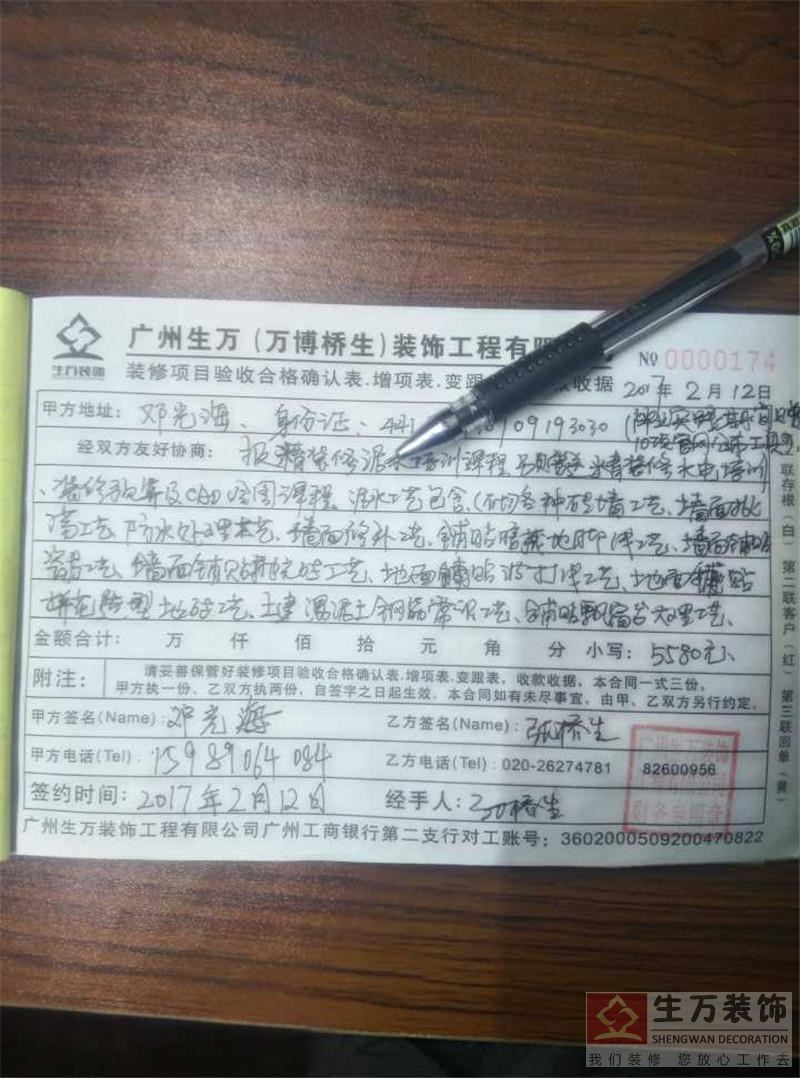 生万装饰
广州生万（万博桥生）装饰工程有限
装修项目验收合格确认表.增项表.变跟 款收据
№ 0000174
2017年2月12日
甲方地址：邓光海、身份证、441 09193030
经双方友好协商：报精装修泥水培训课程 精装修水电培训
、装修预算及CAD绘图课程、泥水工艺包含、(砌各种砖墙工艺、墙面批
荡工艺、防水处理工艺、墙面修补工艺、铺贴 地脚线工艺、墙面铺贴
瓷片工艺、墙面铺贴 砖工艺、地面铺贴 工艺、地面铺贴
拼花 型地砖工艺、土建混泥土钢筋常识工艺、铺贴飘窗台大理工艺、
金额合计： 万 仟 佰 拾 元 角 分 小写：5580元、
附注：
请妥善保管好装修项目验收合格确认表.增项表.变跟表，收款收据，本合同一式三份，
甲方执一份、乙双方执两份，自签字之日起生效。本合同如有未尽事宜，由甲、乙双方另行约定。
甲方签名(Name)：邓光海 乙方签名(Name)：张桥生
甲方电话(Tel)：15989064084 乙方电话(Tel)：020-26274781 82600956
签约时间：2017年2月12日 经手人：张桥生
广州生万装饰工程有限公司广州工商银行第二支行对工账号：3602000509200470822
联存根（白）第二联客户（红）第三联回单（黄）
广州生万装饰
工程有限公司
财务专用章
生万装饰
SHENGWAN DECORATION
我们装修 您放心工作去